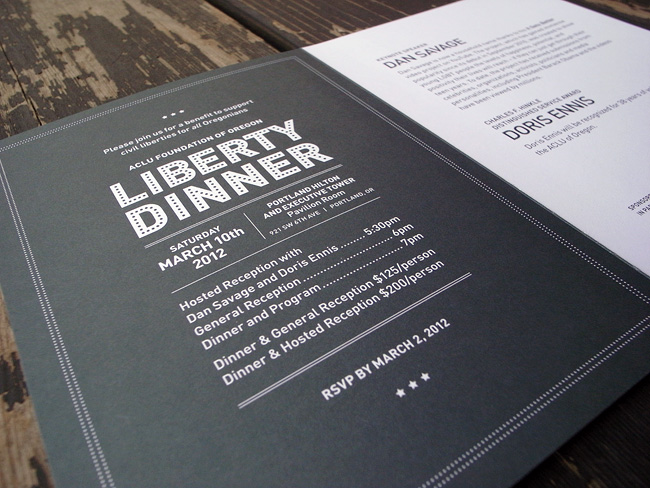 ★ ★ ★
Please join us for a benefit to support
civil liberties for all Oregonians
ACLU FOUNDATION OF OREGON
LIBERTY
DINNER
SATURDAY
MARCH 10th
2012
PORTLAND HILTON
AND EXECUTIVE TOWER
Pavilion Room
921 SW 6TH AVE | PORTLAND, OR
Hosted Reception with
Dan Savage and Doris Ennis ........ 5:30pm
General Reception ........................ 6pm
Dinner and Program ..................... 7pm
Dinner & General Reception $125/person
Dinner & Hosted Reception $200/person
RSVP BY MARCH 2, 2012
★ ★ ★
KEYNOTE SPEAKER
DAN SAVAGE
have been viewed by
CHARLES F. HINKLE
DISTINGUISHED SERVICE AWARD
DORIS ENNIS
Doris Ennis will be recognized for 38 years of
the ACLU of Oregon.